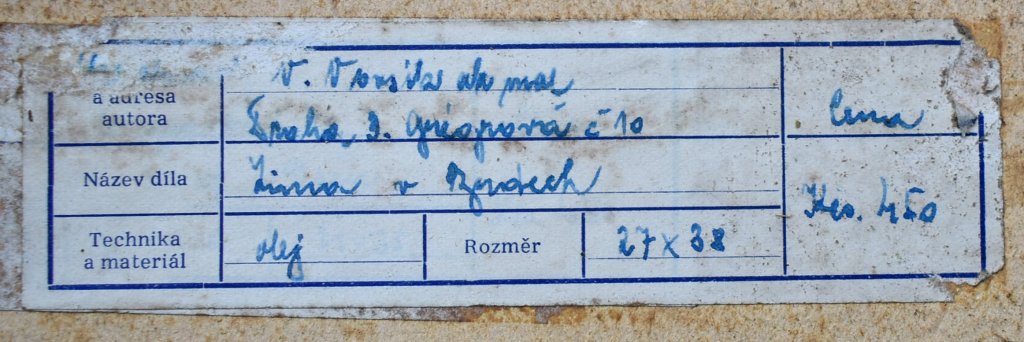 V. Vorsík ak mal
a adresa
autora
Praha 3. Grégrová č 10
Cena
Název díla
Zima v Brdech
Kčs. 450
Technika
a materiál
olej
Rozměr
27 x 38